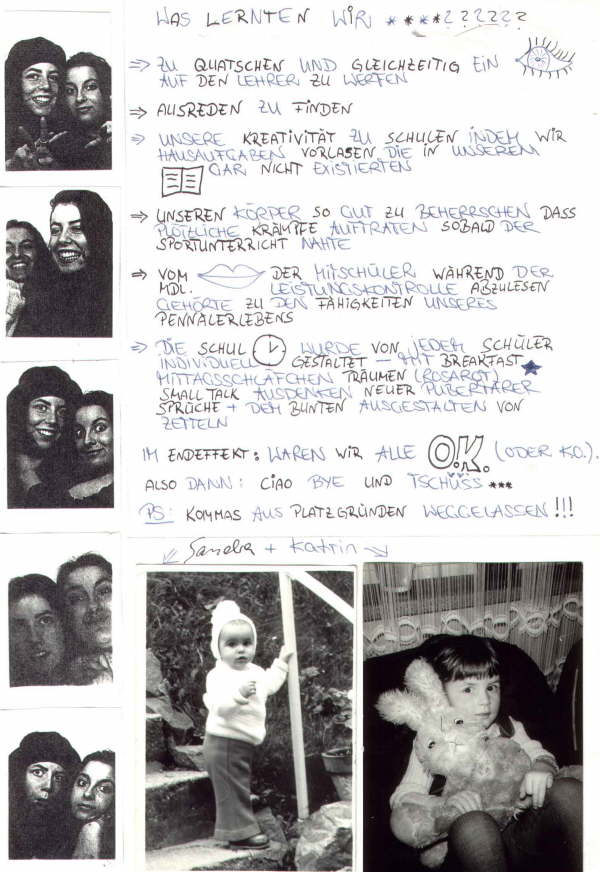 WAS LERNTEN WIR ****??????
⇒ ZU QUATSCHEN UND GLEICHZEITIG EIN
AUF DEN LEHRER ZU WERFEN
⇒ AUSREDEN ZU FINDEN
⇒ UNSERE KREATIVITÄT ZU SCHULEN INDEM WIR
HAUSAUFGABEN VORLASEN DIE IN UNSEREM
GAR NICHT EXISTIERTEN
⇒ UNSEREN KÖRPER SO GUT ZU BEHERRSCHEN DASS
PLÖTZLICHE KRÄMPFE AUFTRATEN SOBALD DER
SPORTUNTERRICHT NAHTE
⇒ VOM DER MITSCHÜLER WÄHREND DER
MDL. LEISTUNGSKONTROLLE ABZULESEN
GEHÖRTE ZU DEN FÄHIGKEITEN UNSERES
PENNÄLERLEBENS
⇒ DIE SCHUL WURDE VON JEDEM SCHÜLER
INDIVIDUELL GESTALTET – MIT BREAKFAST
MITTAGSSCHLÄFCHEN TRÄUMEN (ROSAROT)
SMALL TALK AUSDENKEN NEUER PUBERTÄRER
SPRÜCHE + DEM BUNTEN AUSGESTALTEN VON
ZETTELN
IM ENDEFFEKT: WAREN WIR ALLE O.K. (ODER KO.).
ALSO DANN: CIAO BYE UND TSCHÜSS ***
PS: KOMMAS AUS PLATZGRÜNDEN WEGGELASSEN!!!
Sandra + Katrin